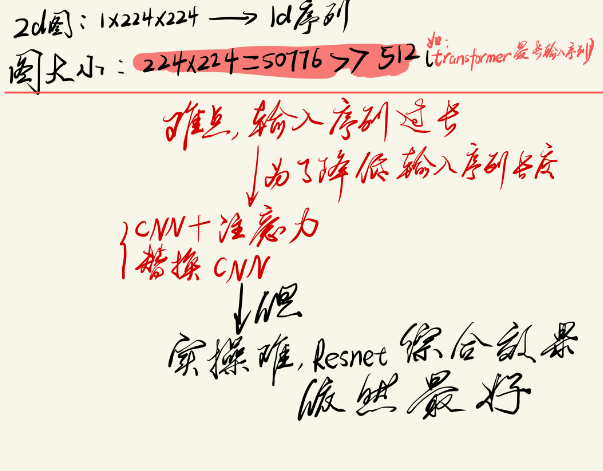 2d图: 1x224x224 → 1d序列
图大小: 224x224=50776>>512 (如: transformer最长输入序列)
难点, 输入序列过长
为了降低输入序列长度
CNN+注意力
替换CNN
但
实操难, Resnet综合效果
依然最好